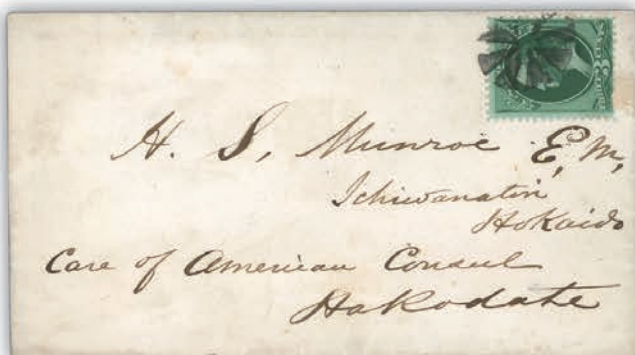 H. S. Munroe E.M.
Ichiwanatin
Hokaido
Care of American Consul
Hakodate